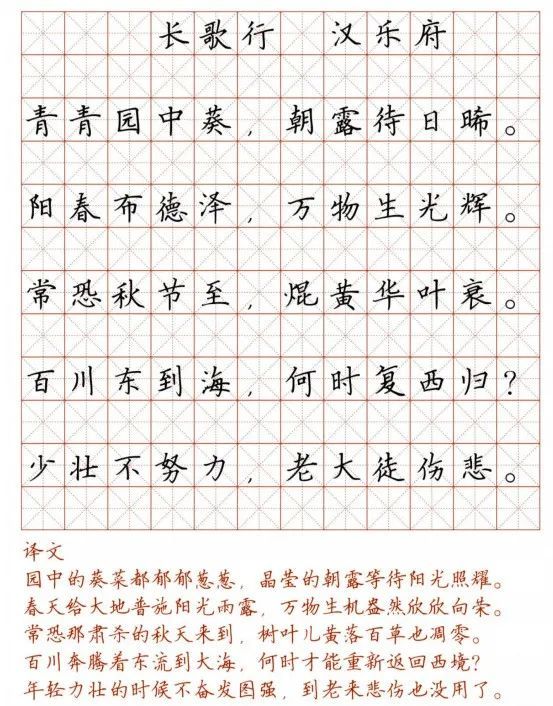 长歌行 汉乐府
青青园中葵，朝露待日晞。
阳春布德泽，万物生光辉。
常恐秋节至，焜黄华叶衰。
百川东到海，何时复西归？
少壮不努力，老大徒伤悲。
译文
园中的葵菜都郁郁葱葱，晶莹的朝露等待阳光照耀。
春天给大地普施阳光雨露，万物生机盎然欣欣向荣。
常恐那肃杀的秋天来到，树叶儿黄落百草也凋零。
百川奔腾着东流到大海，何时才能重新返回西境？
年轻力壮的时候不奋发图强，到老来悲伤也没用了。